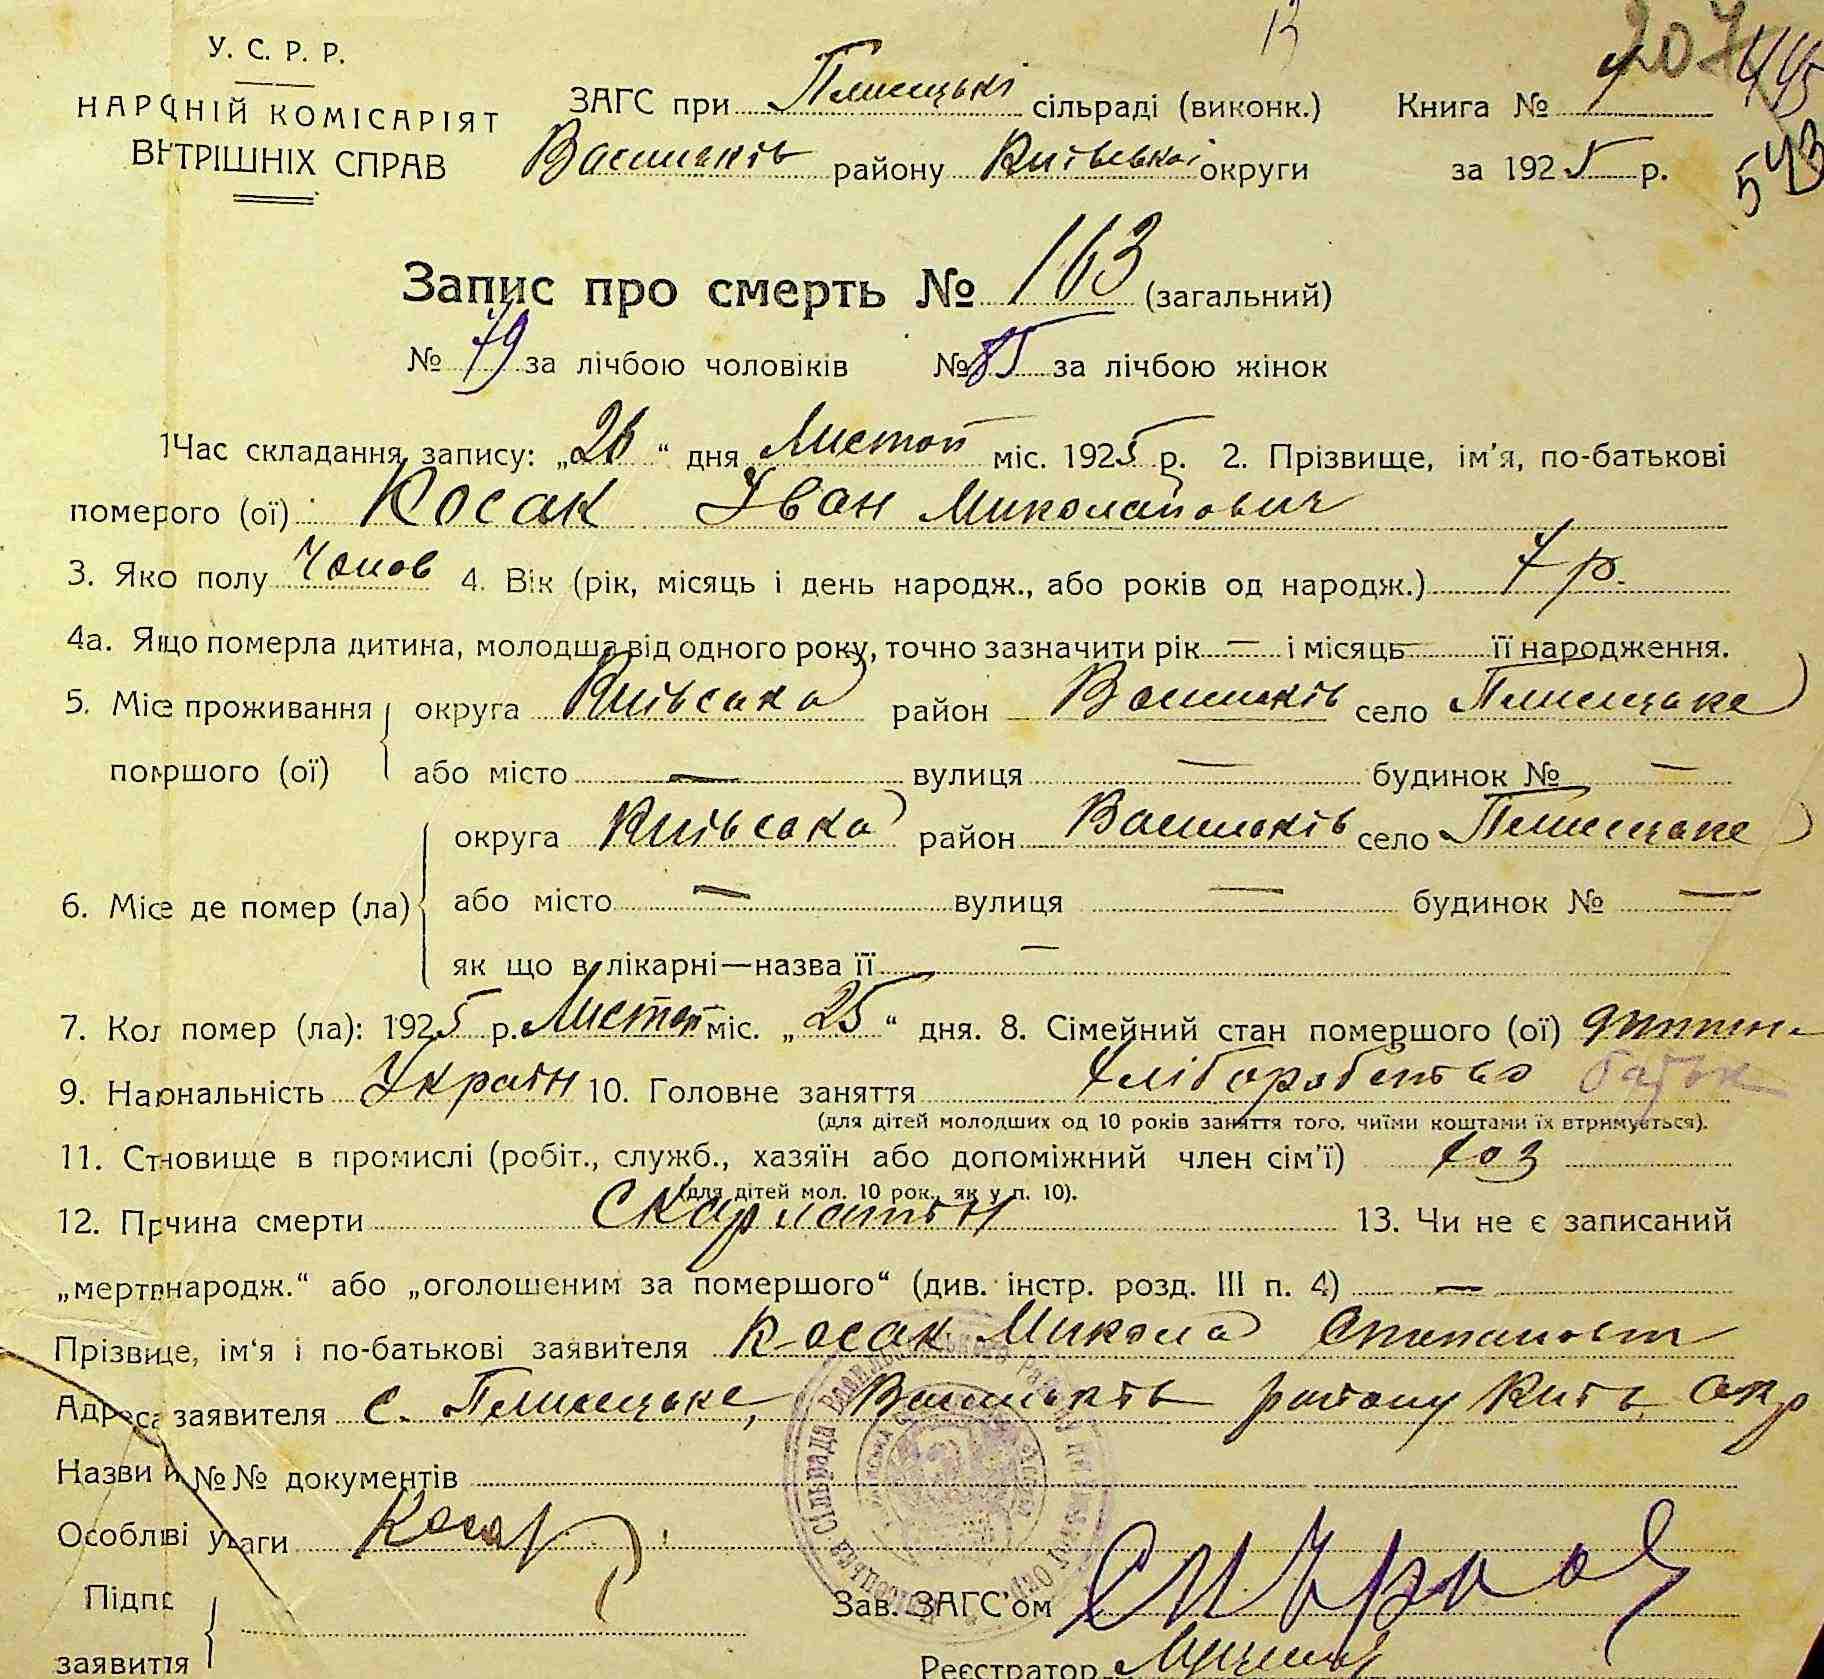 207
У. С. Р. Р.
НАРОДНІЙ КОМІСАРІЯТ
ВНУТРІШНІХ СПРАВ
ЗАГС при Плисецькі сільраді (виконк.) Книга №
Васильків району Київської округи за 1925 р. 543
Запис про смерть № 163 (загальний)
№ 79 за лічбою чоловіків № 85 за лічбою жінок
1 Час складання запису: „26“ дня Листоп міс. 1925 р. 2. Прізвище, ім'я, по-батькові
померого (ої) Косак Іван Миколайович
3. Якого полу Чолов 4. Вік (рік, місяць і день народж., або років од народж.) 7 р.
4а. Якщо померла дитина, молодша від одного року, точно зазначити рік — і місяць — її народження.
5. Місце проживання округа Київська район Васильків село Плисецьке
помершого (ої) або місто — вулиця — будинок № —
округа Київська район Васильків село Плисецьке
6. Місце де помер (ла) або місто — вулиця — будинок № —
як що в лікарні—назва її —
7. Кол помер (ла): 1925 р. Листоп міс. „25“ дня. 8. Сімейний стан помершого (ої) дитин
9. Національність Україн 10. Головне заняття Хліборобство батьк
(для дітей молодших од 10 років заняття того, чиїми коштами їх втримується).
11. Становище в промислі (робіт., служб., хазяїн або допоміжний член сім'ї) хоз
(для дітей мол. 10 рок., як у п. 10).
12. Причина смерти Скарлатин 13. Чи не є записаний
„мертвонародж.“ або „оголошеним за помершого“ (див. інстр. розд. III п. 4) —
Прізвище, ім'я і по-батькові заявителя Косак Микола
Адреса заявителя с. Плисецьке, Васильків району Київ. окр
Назви й №№ документів
Особливі уваги Косак
Підпис
заявителя
Зав. ЗАГС'ом
Реєстратор